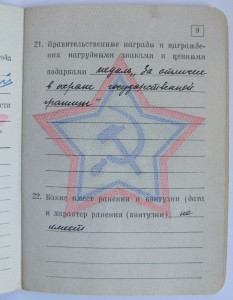 9
21. Правительственные награды и награжде-
ния нагрудными знаками и ценными
подарками медаль „За отличие
в охране государственной
границы"
22. Какие имеет ранения и контузии (дата
и характер ранения (контузии), не
имеет
года
сти